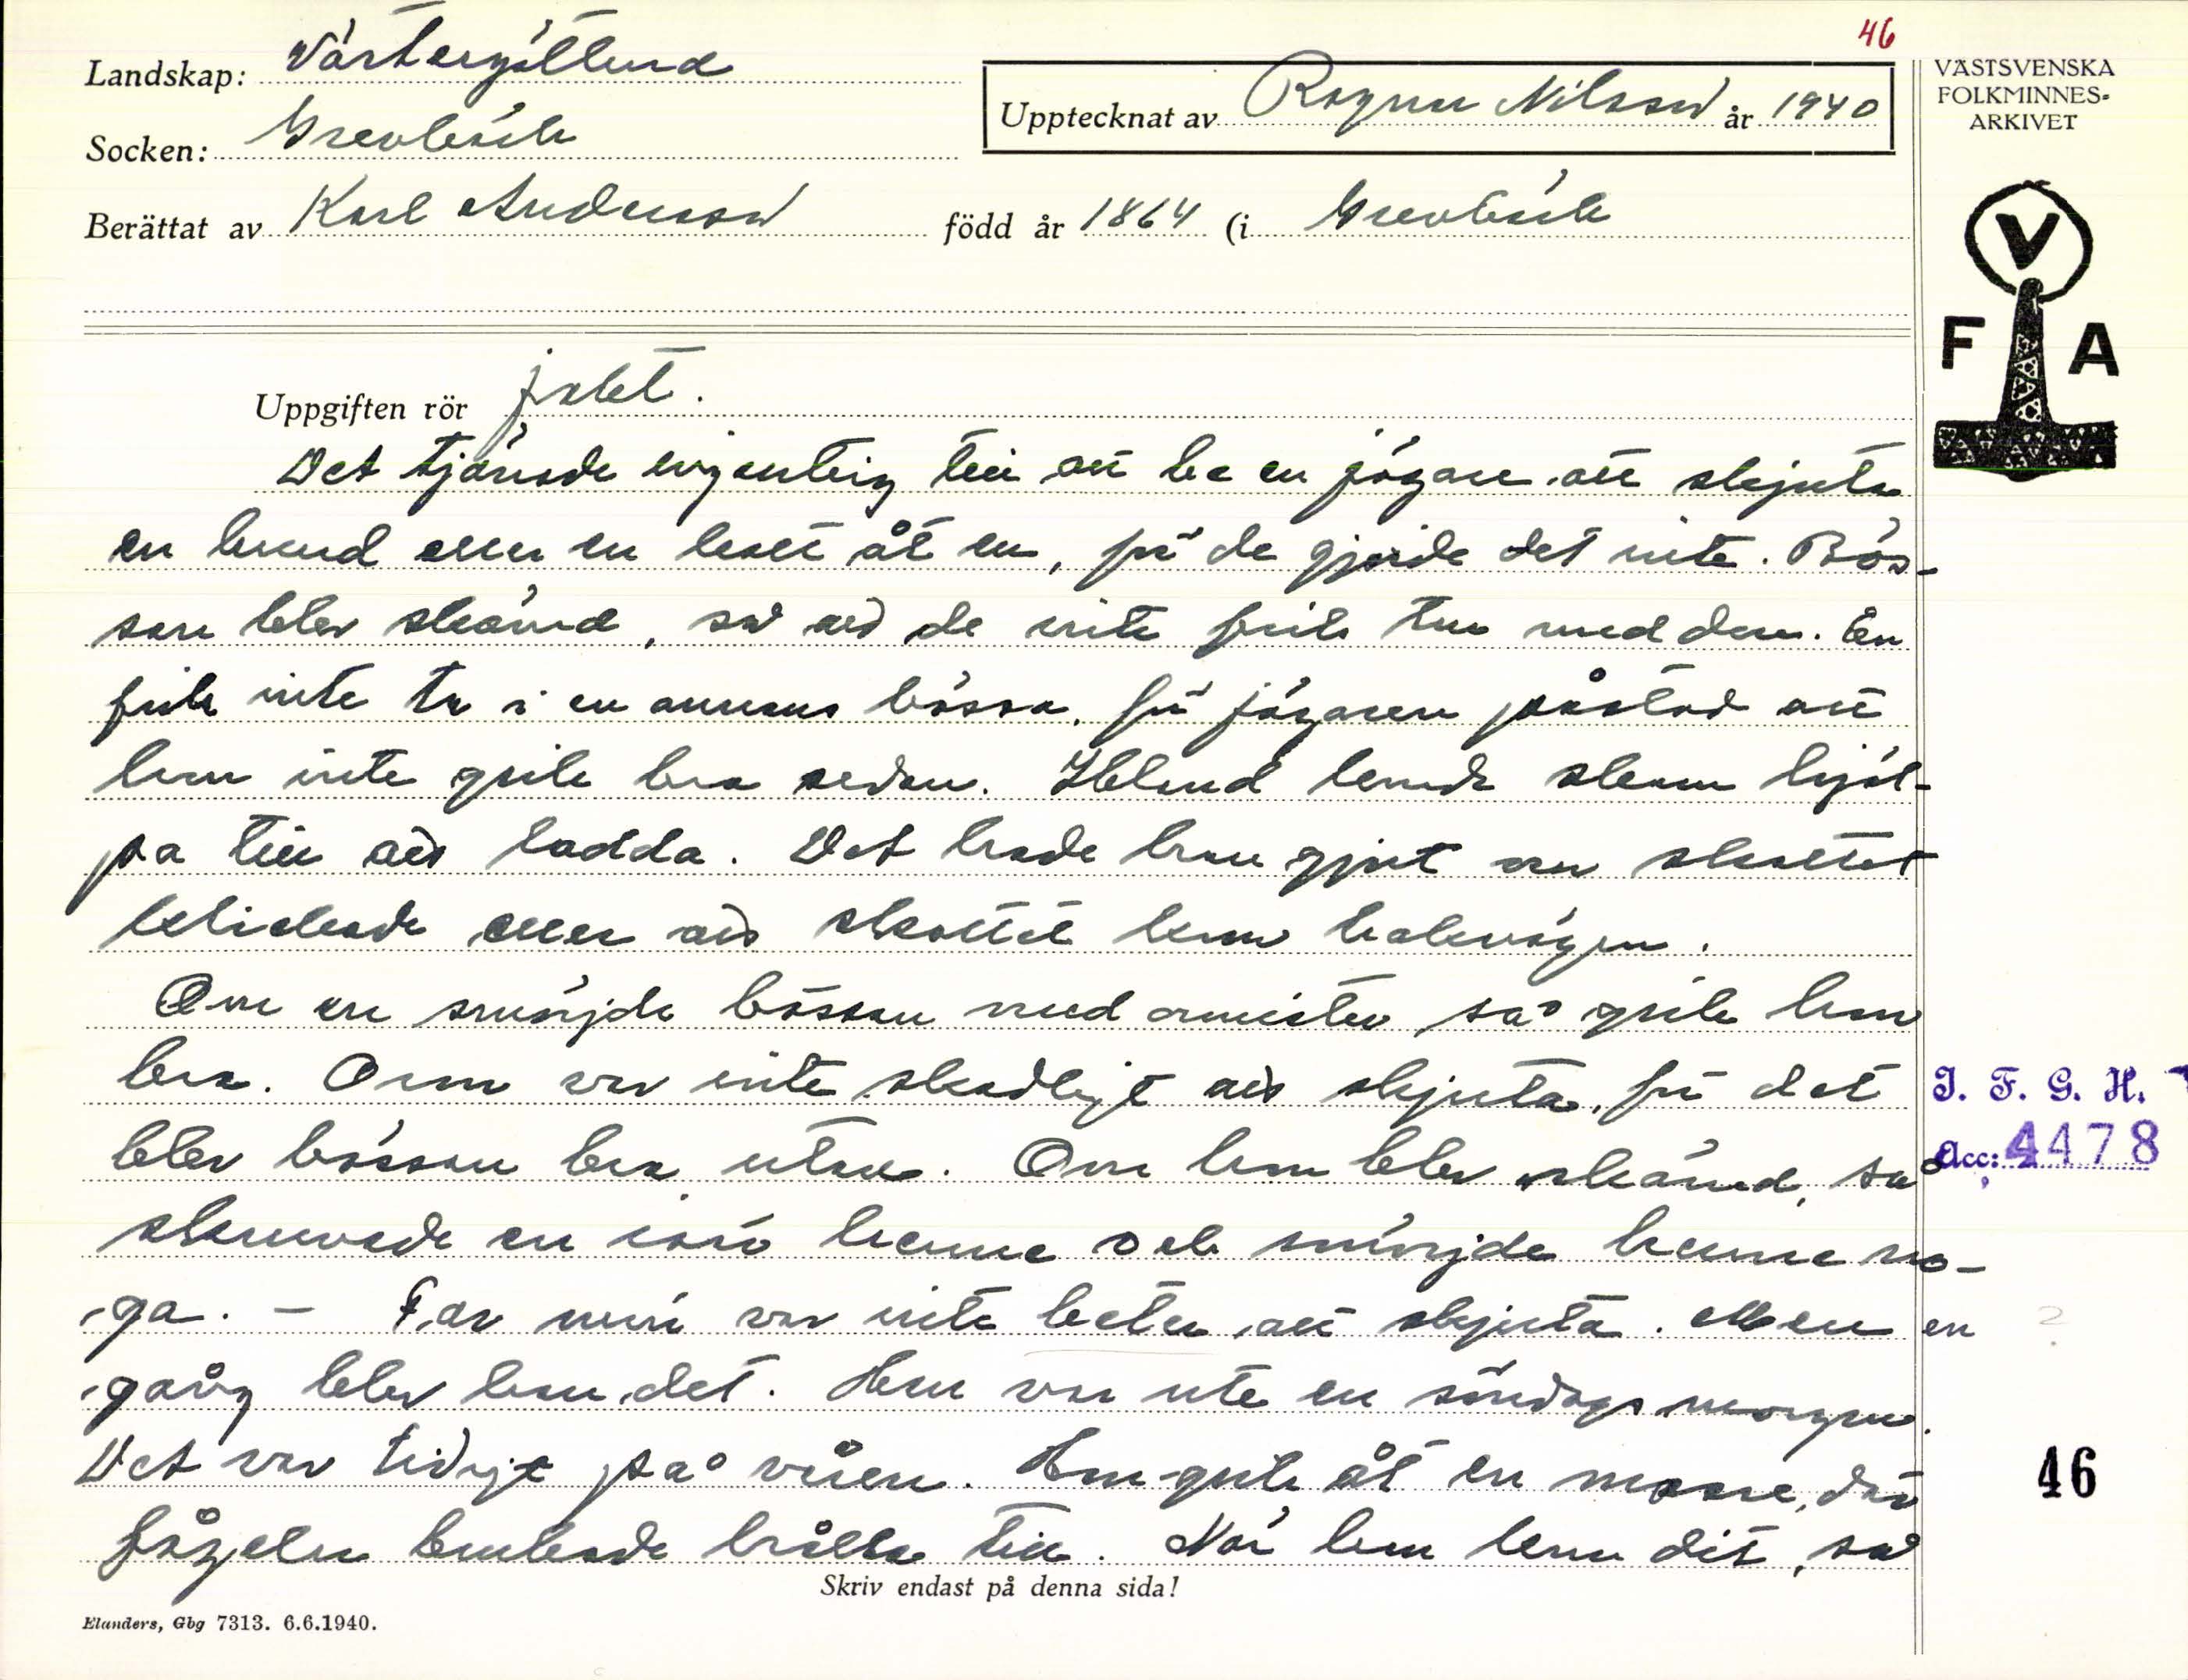 46
Landskap: Västergötland
Upptecknat av Ragnar Nilsson år 1940
VÄSTSVENSKA
FOLKMINNES-
ARKIVET
Socken: Grevbäck
Berättat av Karl Andersson född år 1864 (i Grevbäck
V
F A
Uppgiften rör jakt.
Det tjänade ingenting till att be en jägare att skjuta
en hund eller en katt åt en, för de gjorde det inte. Bös-
san blev skämd, så att de inte fick tur med den. En
fick inte ta i en annans bössa, för jägaren påstod att
han inte gick bra sedan. Ibland kunde skam hjäl-
pa till att ladda. Det hade han gjort om skottet
klickade eller att skottet kom bakvägen.
Om en smörjde bössan med ormister så gick han
bra. Orm var inte skadligt att skjuta, för det
blev bössan bra utav. Om han blev skämd, så
skruvade en isär henne och smörjde henne no-
ga. – Far min var inte beten att skjuta. Men en
gång blev han det. Han var ute en söndagsmorgon.
Det var tidigt på våren. Han gick åt en mosse, där
fågeln brukade hålla till. När han kom dit, så
J. F. G. H.
Acc: 4478
46
Skriv endast på denna sida!
Elanders, Gbg 7313. 6.6.1940.